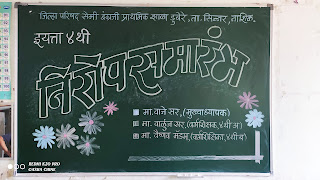 जिल्हा परिषद सेमी इंग्रजी प्राथमिक शाळा डुबेरे, ता. सिन्नर, नाशिक.
इयत्ता ४ थी
निरोपसमारंभ
मा. वाने सर, (मुख्याध्यापक)
मा. वारुंगसर, (वर्गशिक्षक, ४थी अ)
मा. वैष्णव मॅडम, (वर्गशिक्षिका, ४थी ब)
REDMI K20 PRO